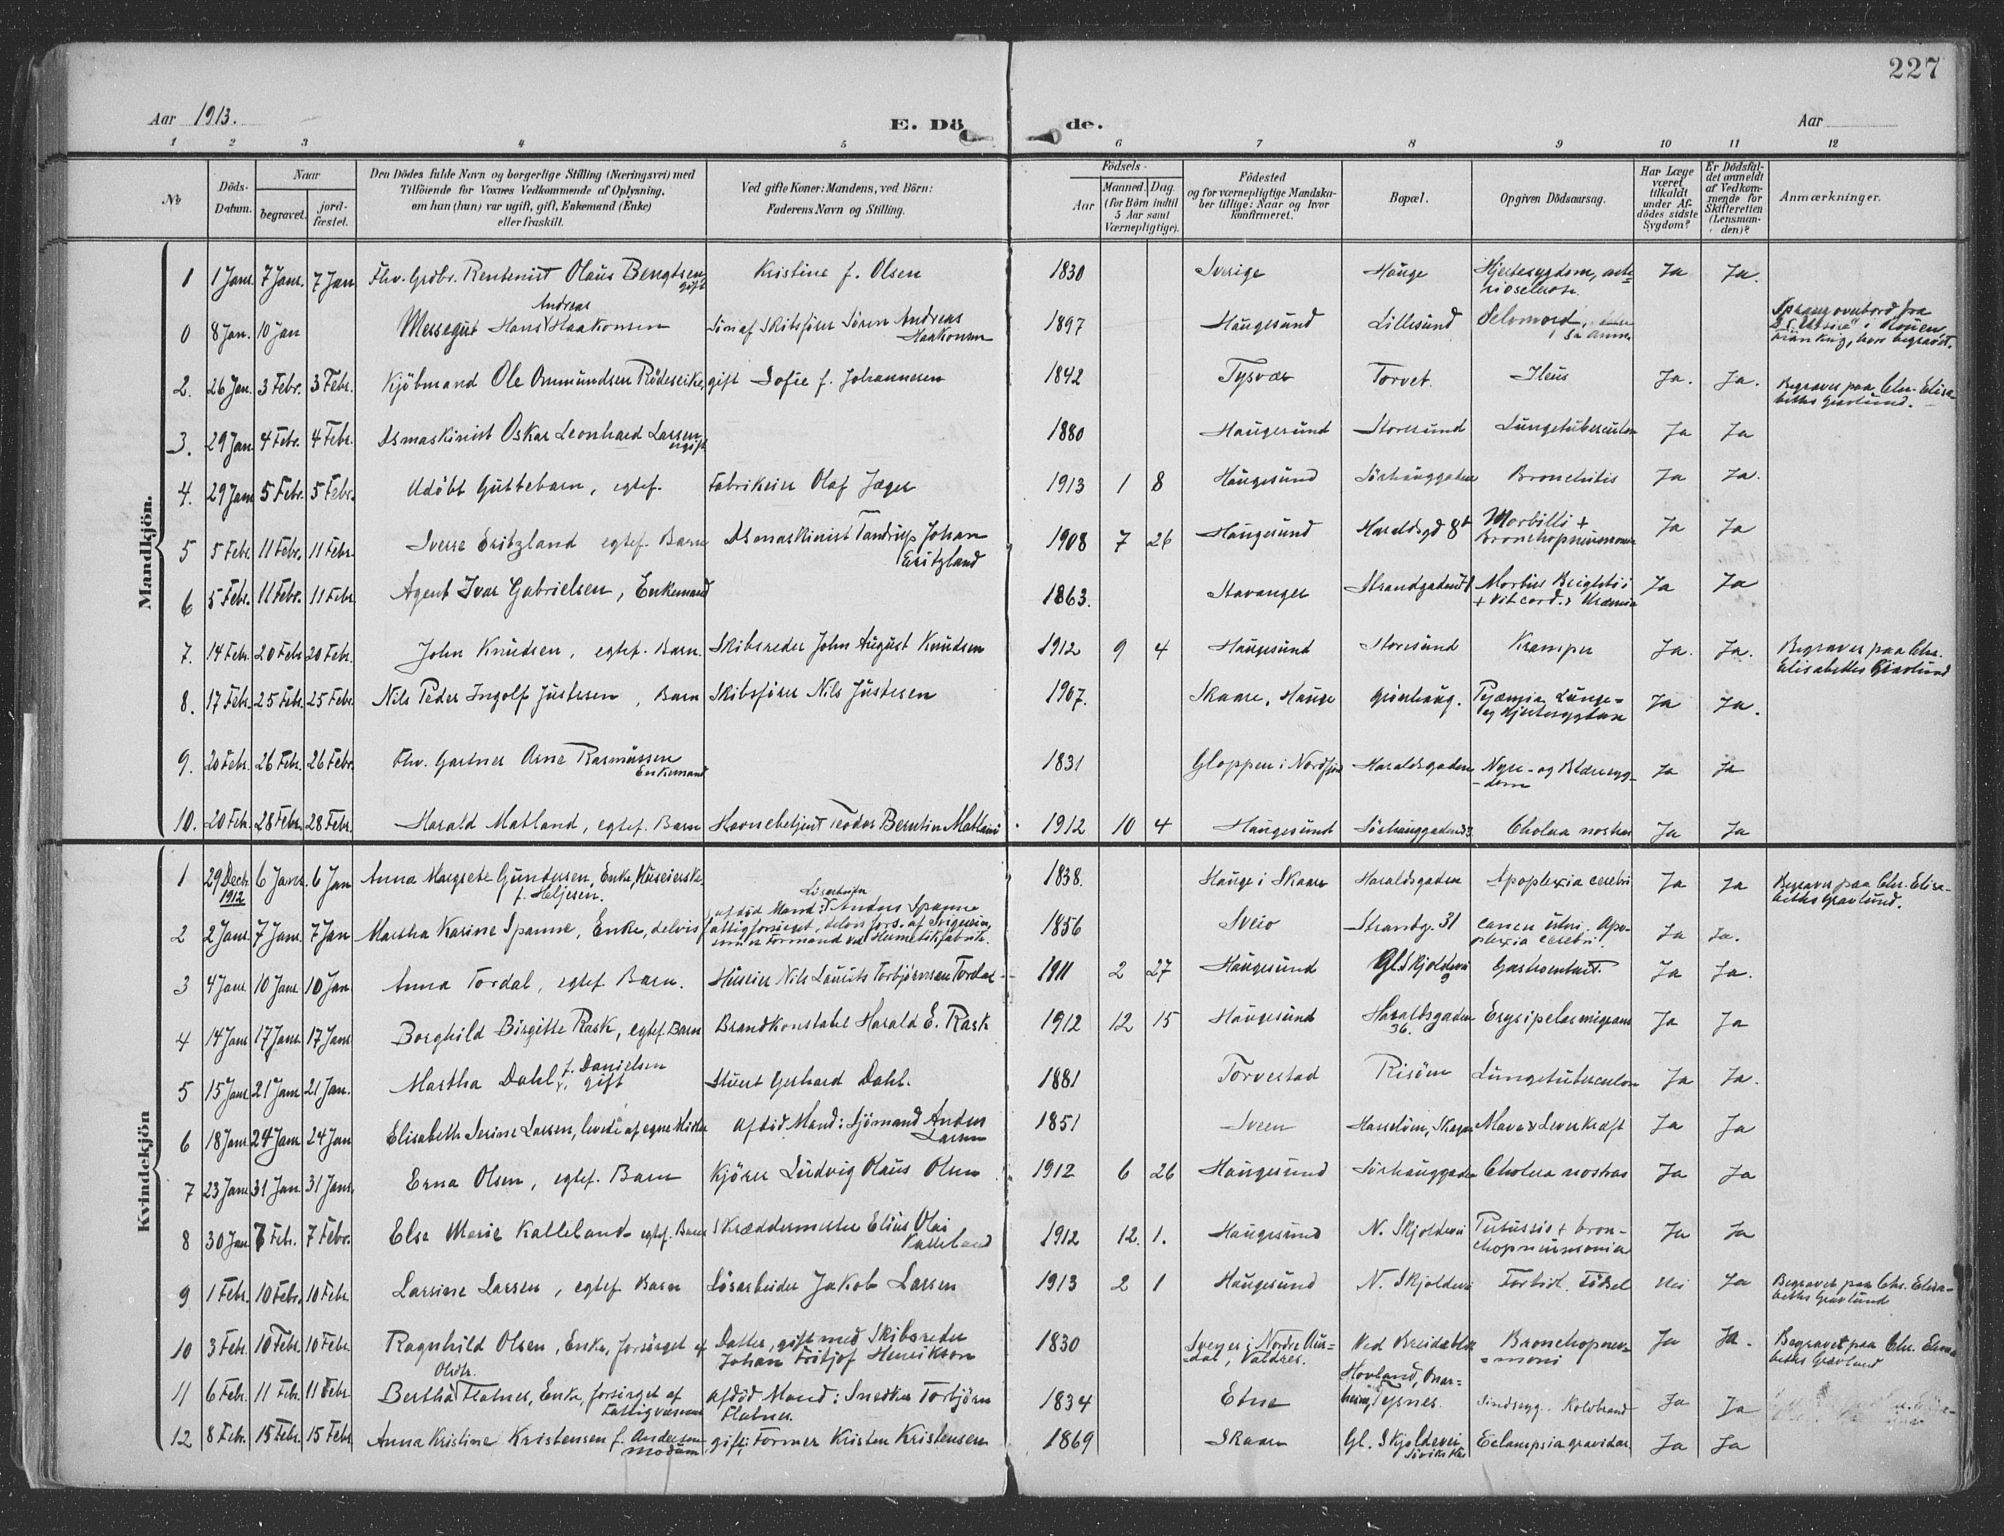 227
Aar 1913. E. Dö de. Aar
1 2 3 4 5 6 7 8 9 10 11 12
№ Döds-Datum. Naar begravet. jordfæstet. Den Dödes fulde Navn og borgerlige Stilling (Næringsvei) med Tilföiende for Voxnes Vedkommende af Oplysning, om han (hun) var ugift, gift, Enkemand (Enke) eller fraskilt. Ved gifte Koner: Mandens, ved Börn: Faderens Navn og Stilling. Födsels- Aar Maaned. Dag. (for Börn indtil 5 Aar samt Værnepligtige). Födested og for værnepligtige Mandskaber tillige: Naar og hvor konfirmeret. Bopæl. Opgiven Dödsaarsag. Har Læge været tilkaldt under Afdödes sidste Sygdom? Er Dödsfaldet anmeldt af Vedkommende for Skifteretten (Lensmanden)? Anmærkninger.
Mandkjön.
1 1 Janr. 7 Janr. 7 Jan Fhv. Grdbr. Rentenist Olaus Bengtsen, gift Kristine f. Olsen 1830 Sverige Hauge Hjertesygdom, Ja Ja.
0 8 Jan. 10 Jan Messegut Hans Andreas Haakonsen Sön af Skibsförer Sören Andreas Haakonsen 1897 Haugesund Lillesund Selvmord, Sprang overbord fra i Rouen, Frankrig, hvor begravet.
2. 26 Jan. 3 Febr. 3 Febr. Kjöbmand Ole Ommundsen Rödeseike, gift Sofie f. Johannesen 1842 Tysvær Torvet. Ileus Ja. Ja. Begravet paa Chr. Elisabeths Gravlund.
3. 29 Jan 4 Febr. 4 Febr. Dsmaskinist Oskar Leonhard Larsen ugift 1880 Haugesund Storesund Lungetuberculose Ja Ja
4. 29 Janr 5 Febr. 5 Febr. Udöbt Guttebarn, egtef. Fabrikeier Olaf Jæger 1913 1 8 Haugesund Sörhauggaden Bronchitis Ja Ja.
5 5 Febr. 11 Febr. 11 Febr. Sverre Eritzland egtef. Barn Dsmaskinist Tandrup Johan Eritzland 1908 7 26 Haugesund Haraldsgd 8 Morbilli + Bronchopneumonia Ja Ja
6 5 Febr. 11 Febr. 11 Febr. Agent Ivar Gabrielsen, Enkemand 1863. Stavanger Strandgaden Morbus Brightii + Vit. cord. Uræmia Ja Ja
7. 14 Febr. 20 Febr. 20 Febr. John Knudsen, egtef. Barn. Skibsreder John August Knudsen 1912 9 4 Haugesund Storesund Kramper Ja. Ja. Begravet paa Chr. Elisabeths Gravlund
8. 17 Febr. 25 Febr. 25 Febr. Nils Peder Ingolf Justesen, Barn Skibsförer Nils Justesen 1907. Skaare, Hauge Grönhaug. Pyæmia, Lunge- og Hjertesygdom Ja Ja.
9. 20 Febr. 26 Febr. 26 Febr. Fhv. Gartner Arne Rasmussen Enkemand 1831 Gloppen i Nordfjord Haraldsgaden Nyre- og Blæresygdom Ja Ja
10. 20 Febr. 28 Febr. 28 Febr. Harald Matland, egtef. Barn Havnebetjent Teodor Berntin Matland 1912 10 4 Haugesund Sörhauggaden Cholera nostras Ja Ja
Kvindekjön
1 29 Decb. 1912 6 Janr. 6 Jan Anna Margrete Gundersen, Enke, Huseierske, f. Heljesen. 1838. Hauge i Skaare Haraldsgaden Apoplexia cerebri Ja Ja Begravet paa Chr. Elisabeths Gravlund.
2 2 Janr. 7 Janr. 7 Jan Martha Karine Spanne, Enke, delvis fattigforsörget, delvis fors. af Svigersön, afdöd Mand: Lösarbeider Anders Spanne Formand ved Hermetikfabrik. 1856 Sveio Strandg. 31 cancer uteri. Apoplexia cerebri. Ja Ja.
3 4 Janr 10 Janr 10 Jan Anna Tordal, egtef. Barn. Huseier Nils Laurits Torbjörnsen Tordal 1911 2 27 Haugesund Gl. Skjoldevei 9 Gastroenterit. Ja Ja.
4 14 Janr 17 Janr. 17 Janr Borghild Birgitte Rask, egtef. Barn Brandkonstabel Harald E. Rask 1912 12 15 Haugesund Haraldsgaden 36. Erysipelas migrans Ja Ja
5 15 Janr 21 Janr 21 Jan. Martha Dahl, f. Danielsen gift Stuert Gerhard Dahl. 1881 Torvestad Risöen Lungetuberculose Ja Ja.
6 18 Janr 24 Janr 24 Jan Elisabeth Serine Larsen, levede af egne Midler afdöd Mand: Sjömand Anders Larsen 1851 Sveen Hasselöen, Skaare Mave & Leverkræft Ja Ja
7 23 Janr 31 Jan 31 Janr. Erna Olsen, egtef. Barn Kjörer Ludvig Olaus Olsen 1912 6 26 Haugesund Sörhauggaden Cholera nostras Ja Ja
8 30 Jan 7 Feb. 7 Febr. Else Marie Kalleland egtef. Barn Skræddermester Elius Olai Kalleland 1912 12. 1. Haugesund N. Skjoldevei Pertussis + bronchopneumonia Ja Ja
9 1 Febr. 10 Febr. 10 Febr. Larsine Larsen, egtef. Barn Lösarbeider Jakob Larsen 1913 2 1 Haugesund N. Skjoldevei Fortid. Födsel Nei Ja Begravet paa Chr. Elisabeths Gravlund
10 3 Febr. 10 Febr. 10 Febr. Ragnhild Olsen, Enke, forsörget af Datter, gift med Skibsreder Johan Fritjof Henrikson 1830 i Nordre Aurdal, Valdres. Ved Breidablik Bronchopneumoni Ja Ja. Begravet paa Chr. Elisabeths Gravlund
11 6 Febr. 11 Febr. 11 Febr. Bertha Olsdtr. Flatnes, Enke, forsörget af Fattigvæsenet afdöd Mand: Snedker Torbjörn Flatnes. 1834 Etne Hovland, Onarheim, Tysnes. Sindssyg. Koldbrand Ja Ja
12 8 Feb. 15 Febr. 15 Febr. Anna Kristine Kristensen f. Andersen Modum gift: Former Kristen Kristensen 1869 Skaare Gl. Skjoldevei Eclampsia gravidar. Ja Ja